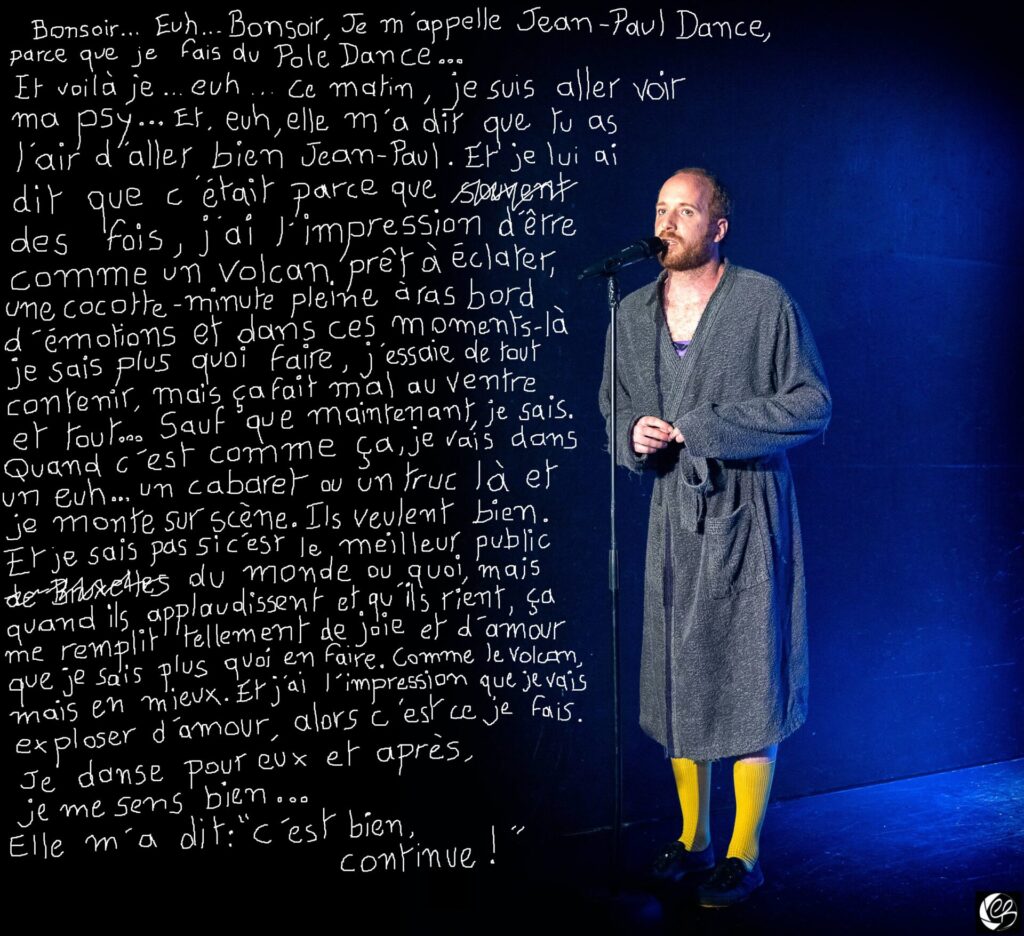 Bonsoir... Euh... Bonsoir, Je m'appelle Jean-Paul Dance,
parce que je fais du Pole Dance...
Et voilà je ... euh ... ce matin, je suis aller voir
ma psy... Et, euh, elle m'a dit que tu as
l'air d'aller bien Jean-Paul. Et je lui ai
dit que c'était parce que souvent
des fois, j'ai l'impression d'être
comme un volcan prêt à éclater,
une cocotte-minute pleine à ras bord
d'émotions et dans ces moments-là
je sais plus quoi faire, j'essaie de tout
contenir, mais ça fait mal au ventre
et tout... Sauf que maintenant, je sais.
Quand c'est comme ça, je vais dans
un euh... un cabaret ou un truc là et
je monte sur scène. Ils veulent bien.
Et je sais pas si c'est le meilleur public
de Bruxelles du monde ou quoi, mais
quand ils applaudissent et qu'ils rient, ça
me remplit tellement de joie et d'amour
que je sais plus quoi en faire. Comme le volcan,
mais en mieux. Et j'ai l'impression que je vais
exploser d'amour, alors c'est ce je fais.
Je danse pour eux et après,
je me sens bien...
Elle m'a dit: "c'est bien,
continue ! "